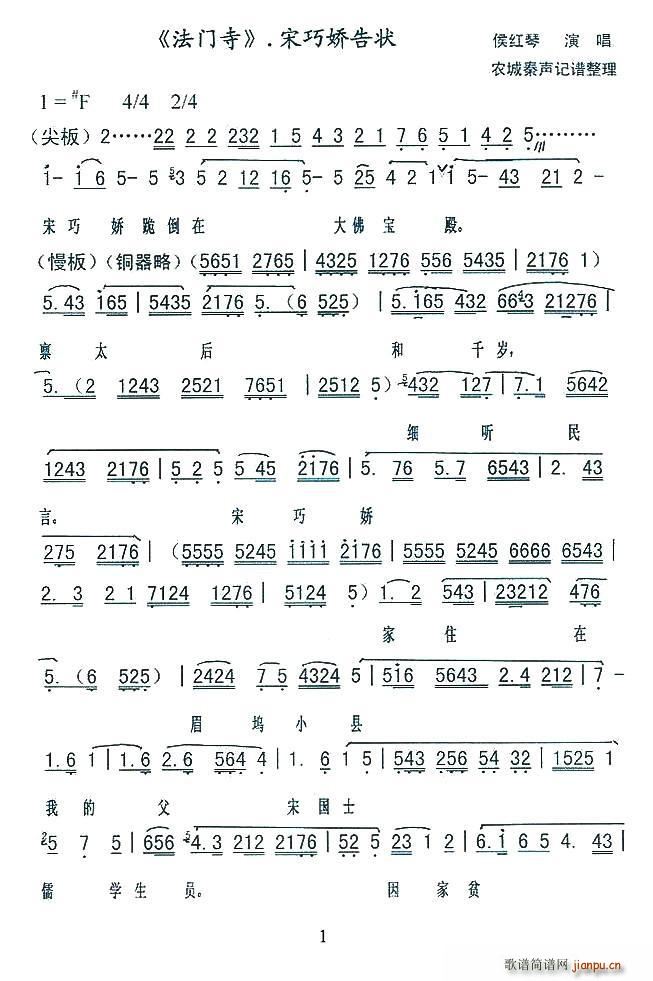 《法门寺》.宋巧娇告状 侯红琴 演 唱
农城秦声记谱整理
1=#F 4/4 2/4
(尖板) 2……22 2 2 232 1 5 4 3 2 1 7 6 5 1 4 2 5………
i- i 6 5- 5- 3 5 2 12 16 5- 5 25 4 2 1 i 5- 43 21 2 -
宋 巧 娇 跪 倒 在 大 佛 宝 殿。
(慢板)(铜器略)(5651 2765|4325 1276 556 5435|2176 1)
5.43 i65|5435 2176 5.(6 525)|5.i65 432 6643 21276|
禀 太 后 和 千 岁,
5.(2 1243 2521 7651|2512 5) 432 127|7.1 5642
细 听 民
1243 2176|5 2 5 5 45 2176|5. 76 5.7 6543|2. 43
言。 宋 巧 娇
275 2176|(5555 5245 iiii 2176|5555 5245 6666 6543|
2. 3 2 2 7124 1276|5124 5)1. 2 543|23212 476
家 住 在
5.(6 525)|2424 7 5 4324 5|516 5643 2.4 212|7 -
眉 坞 小 县
1.6 1|1.6 2 2.6 564 4|1. 6 1 5|543 256 54 32|1525 1
我 的 父 宋 国 士
5 7 5|656 4.3 212 2176|52 5 23 1 2|6.i 6 5 4. 43|
儒 学 生 员。 因 家 贫
1
歌谱简谱网
jianpu.cn